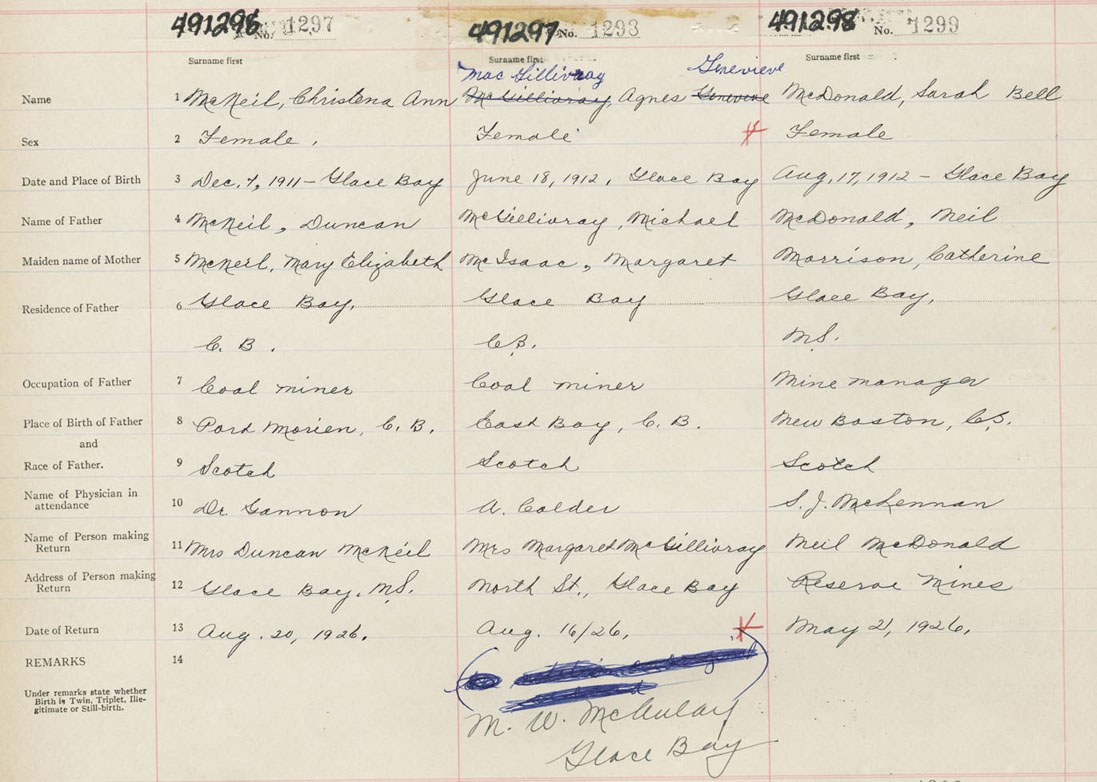 491296 No. 1297 491297 No. 1298 491298 No. 1299
Surname first Surname first Surname first
Mac Gillivray Genevieve
Name 1 McNeil, Christena Ann McGillivray, Agnes Genevieve McDonald, Sarah Bell
Sex 2 Female. Female Female
Date and Place of Birth 3 Dec. 7, 1911 - Glace Bay June 18, 1912, Glace Bay Aug, 17, 1912 - Glace Bay
Name of Father 4 McNeil, Duncan McGillivray, Michael McDonald, Neil
Maiden name of Mother 5 McNeil, Mary Elizabeth McIsaac, Margaret Morrison, Catherine
Residence of Father 6 Glace Bay, Glace Bay Glace Bay,
C. B. C.B. N.S.
Occupation of Father 7 Coal miner Coal miner Mine manager
Place of Birth of Father 8 Port Morien, C. B. East Bay, C. B. New Boston, C.B.
and
Race of Father. 9 Scotch Scotch Scotch
Name of Physician in
attendance 10 Dr Gannon A. Calder S. J. McLennan
Name of Person making
Return 11 Mrs Duncan McNeil Mrs Margaret McGillivray Neil McDonald
Address of Person making
Return 12 Glace Bay, N.S. North St., Glace Bay Reserve Mines
Date of Return 13 Aug. 20, 1926. Aug. 16/26. May 21, 1926.
REMARKS 14
Under remarks state whether
Birth is Twin, Triplet, Ille-
gitimate or Still-birth.
M. W. McAulay
Glace Bay